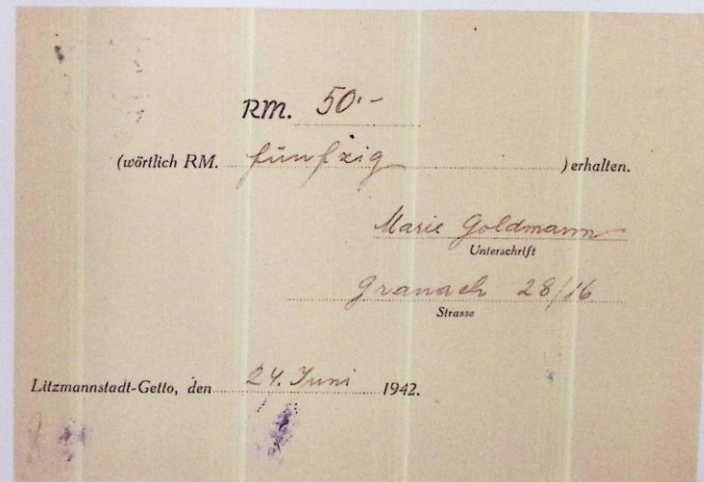 RM. 50.-
(wörtlich RM. fünfzig ) erhalten.
Marie Goldmann
Unterschrift
Granach 28/16
Strasse
Litzmannstadt-Getto, den 24. Juni 1942.